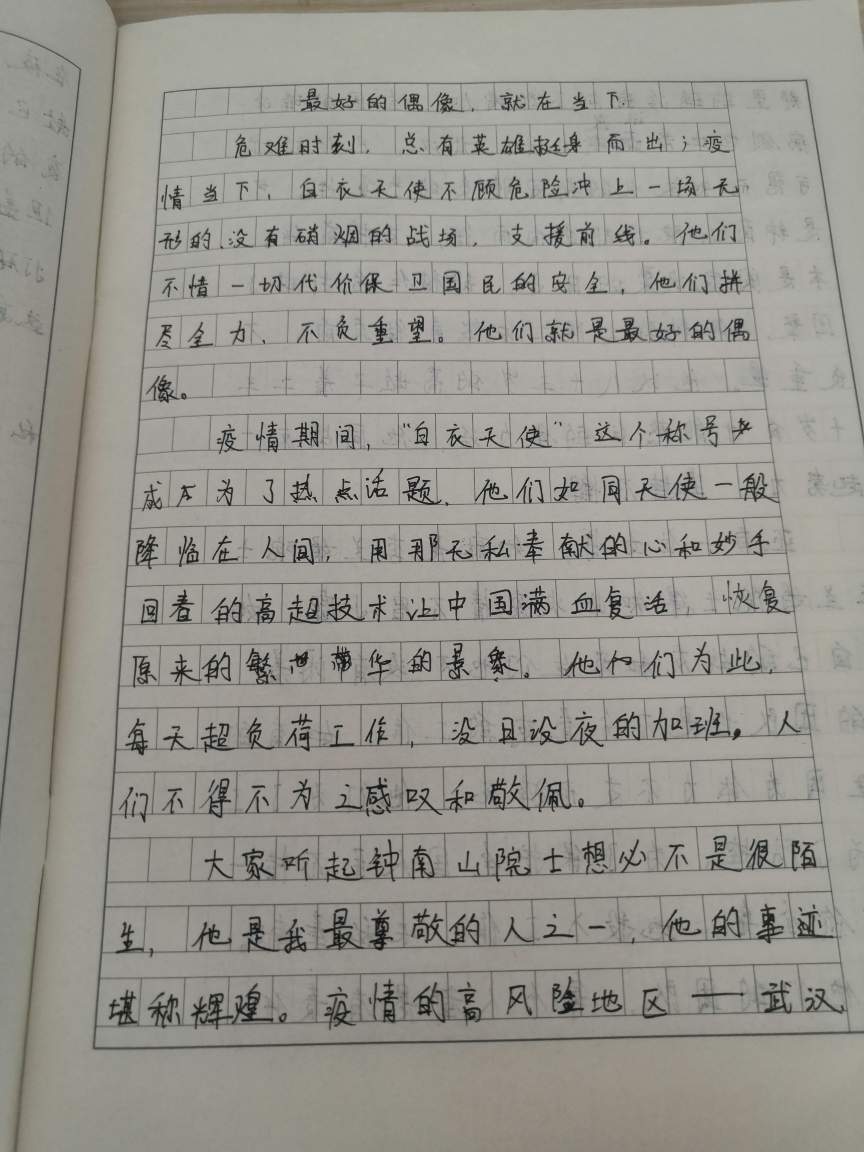 最好的偶像，就在当下
危难时刻，总有英雄挺身而出；疫
情当下，白衣天使不顾危险冲上一场无
形的，没有硝烟的战场，支援前线。他们
不惜一切代价保卫国民的安全，他们拼
尽全力，不负重望。他们就是最好的偶
像。
疫情期间，“白衣天使”这个称号
成为了热点话题，他们如同天使一般
降临在人间，用那无私奉献的心和妙手
回春的高超技术让中国满血复活，恢复
原来的繁华的景象。他们为此，
每天超负荷工作，没日没夜的加班。人
们不得不为之感叹和敬佩。
大家听起钟南山院士想必不是很陌
生，他是我最尊敬的人之一，他的事迹
堪称辉煌。疫情的高风险地区——武汉，